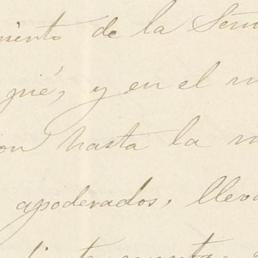 miento de la Sem
pié, y en el m
on hasta la m
apoderados, lleva